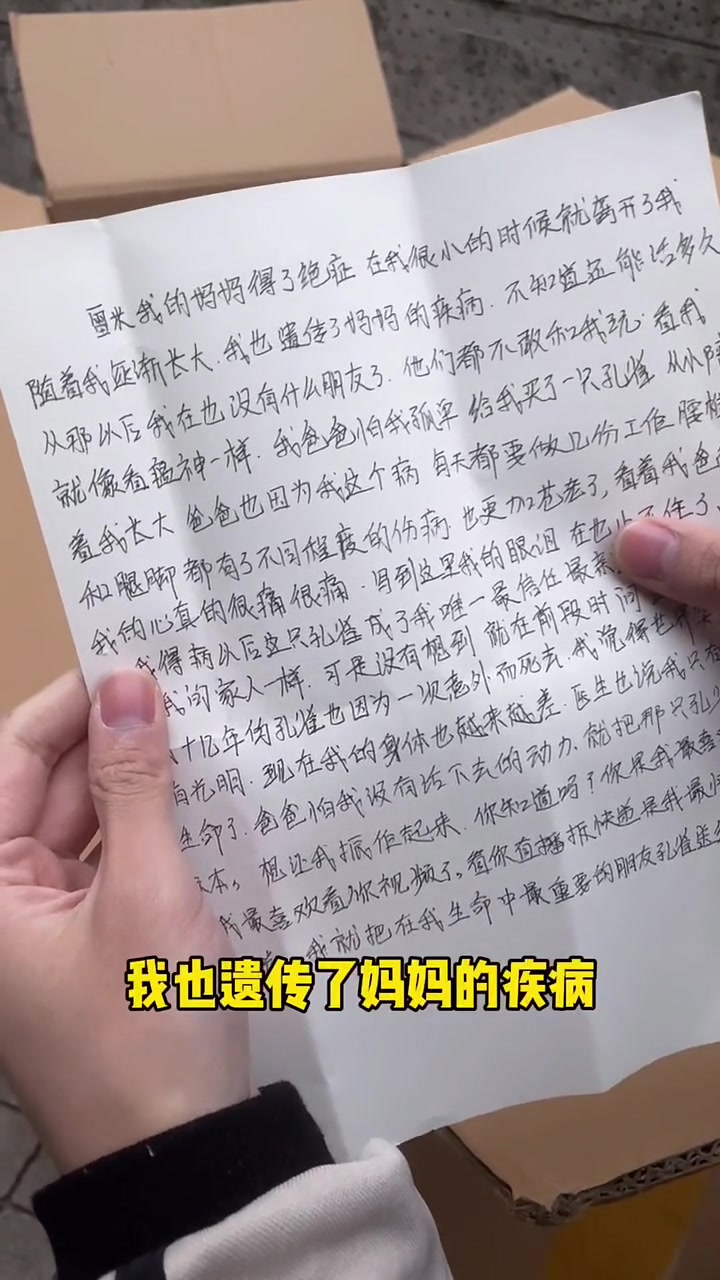 我的妈妈得了绝症 在我很小的时候就离开了我
随着我逐渐长大.我也遗传了妈妈的疾病.不知道还能活多久
从那以后我在也没有什么朋友了.他们都不敢和我玩.看我
就像看瘟神一样.我爸爸怕我孤单 给我买了一只孔雀 从小陪
着我长大 爸爸也因为我这个病 每天都要做几份工作 腰椎
和腿脚都有了不同程度的伤病.也更加苍老了,看着我爸爸
我的心真的很痛很痛.写到这里我的眼泪 在也止不住了.
我得病以后这只孔雀成了我唯一最信任最亲
我的家人一样.可是没有想到 就在前段时间
十几年的孔雀也因为一次意外而死去.我觉得世界
光明.现在我的身体也越来越差.医生也说我只有
生命了.爸爸怕我没有活下去的动力.就把那只孔雀
标本,想让我振作起来.你知道吗?你是我最喜
我最喜欢看你视频了,看你直播拆快递是我最
我就把在我生命中最重要的朋友孔雀送
我也遗传了妈妈的疾病